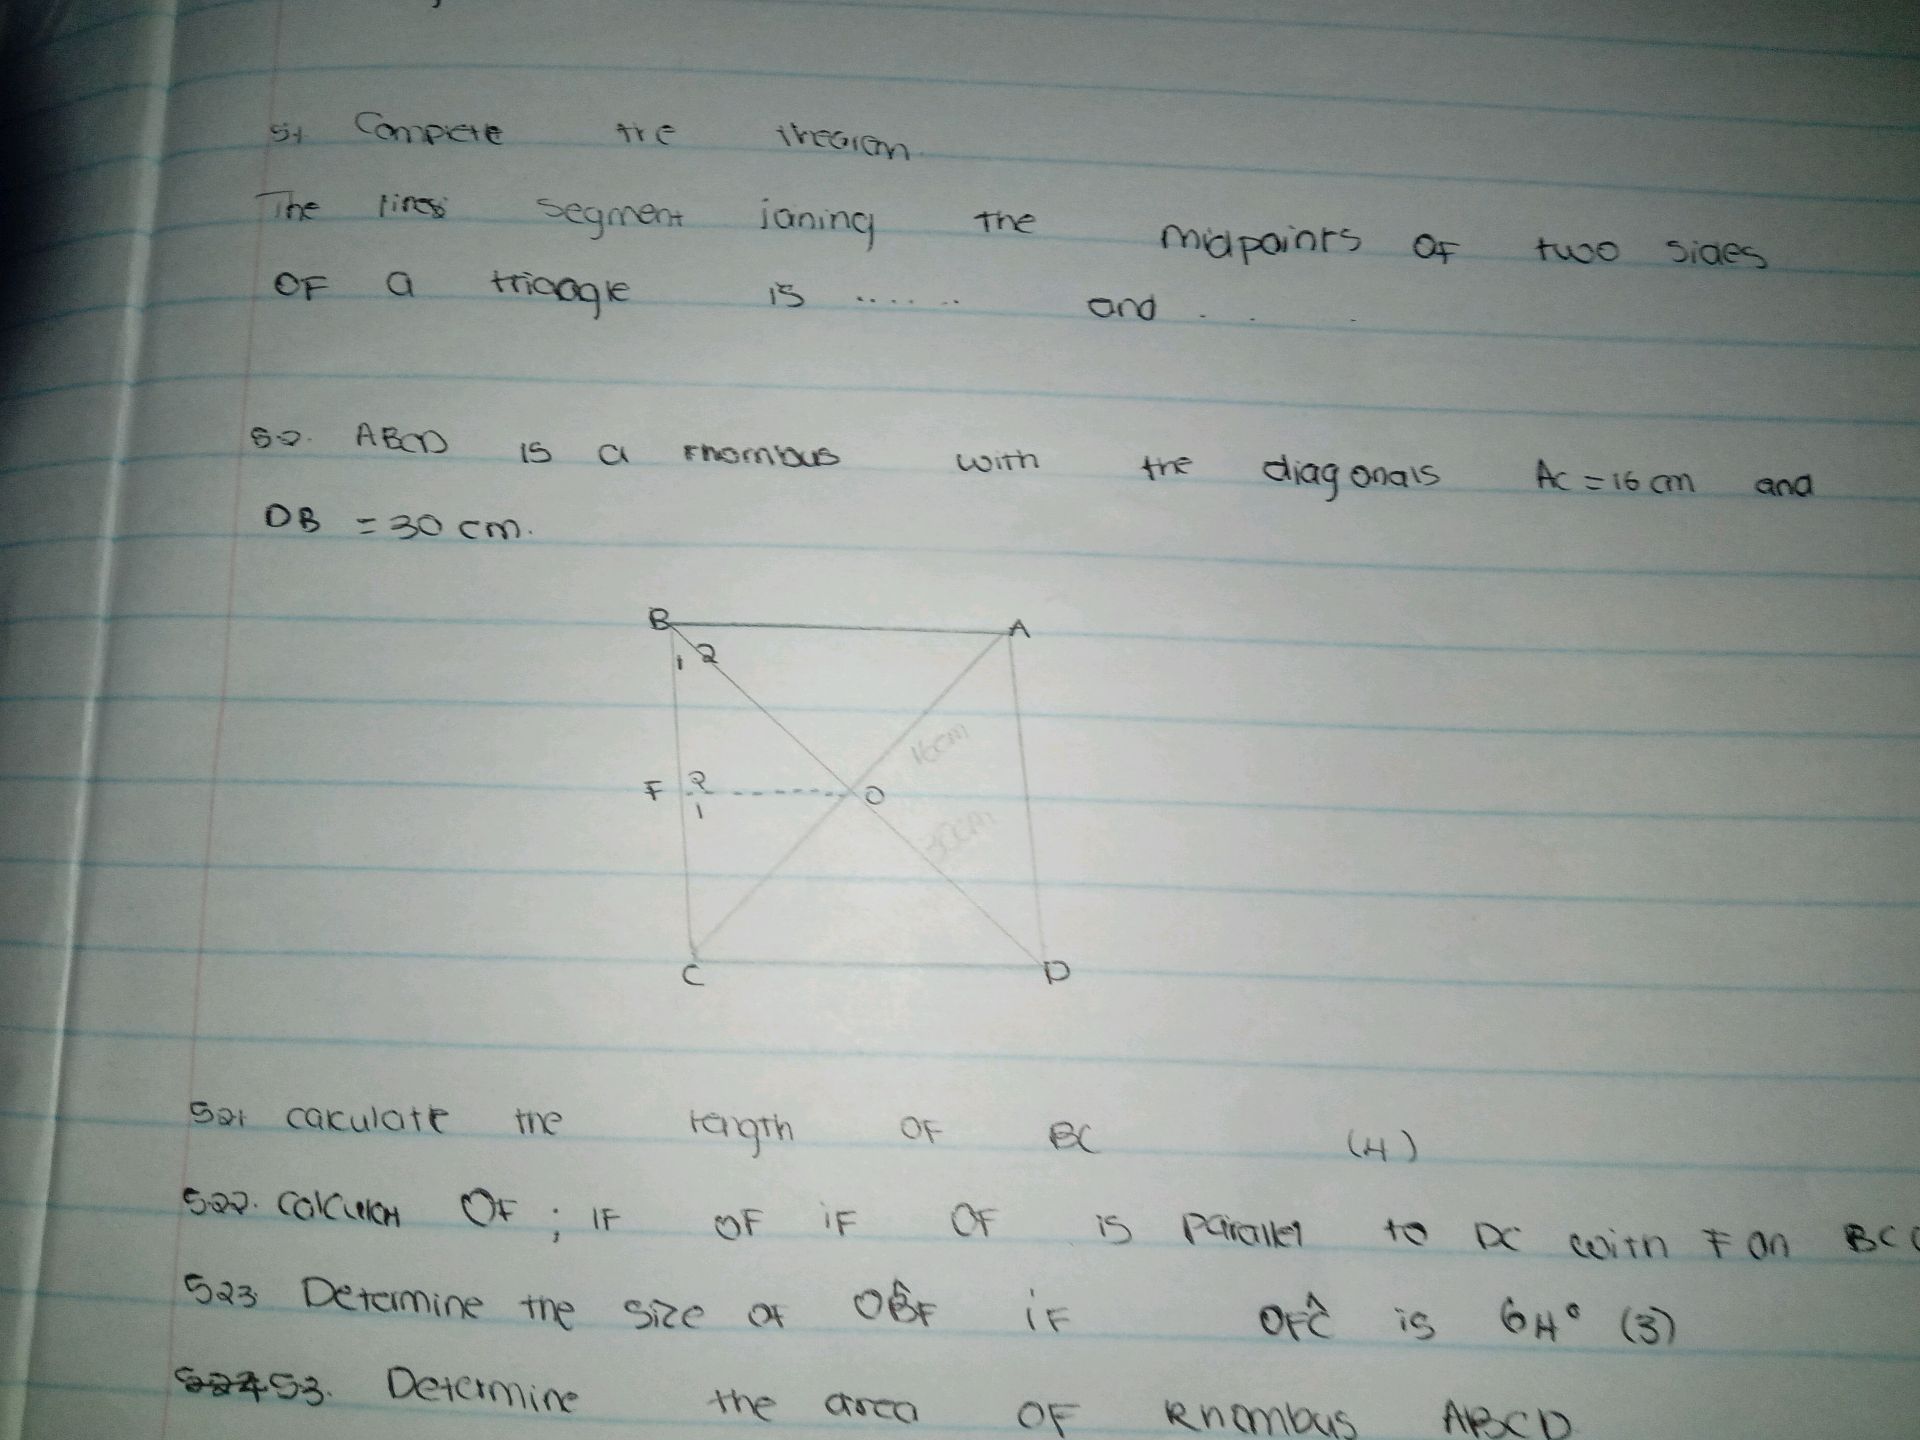 5.1 Complete the theorem
The lines segment joining the midpoints of two sides
of a triangle is ...... and . . .
5.2. ABCD is a rhombus with the diagonals AC = 16 cm and
DB = 30 cm.
B A
1 2
16cm
F 2 O
1
30cm
C D
5.2.1 calculate the length of BC (4)
5.2.2. Calculate OF ; if OF if OF is parallel to DC with F on BC
5.2.3 Determine the size of OB̂F if OFĈ is 64° (3)
5.3. Determine the area of Rhombus ABCD